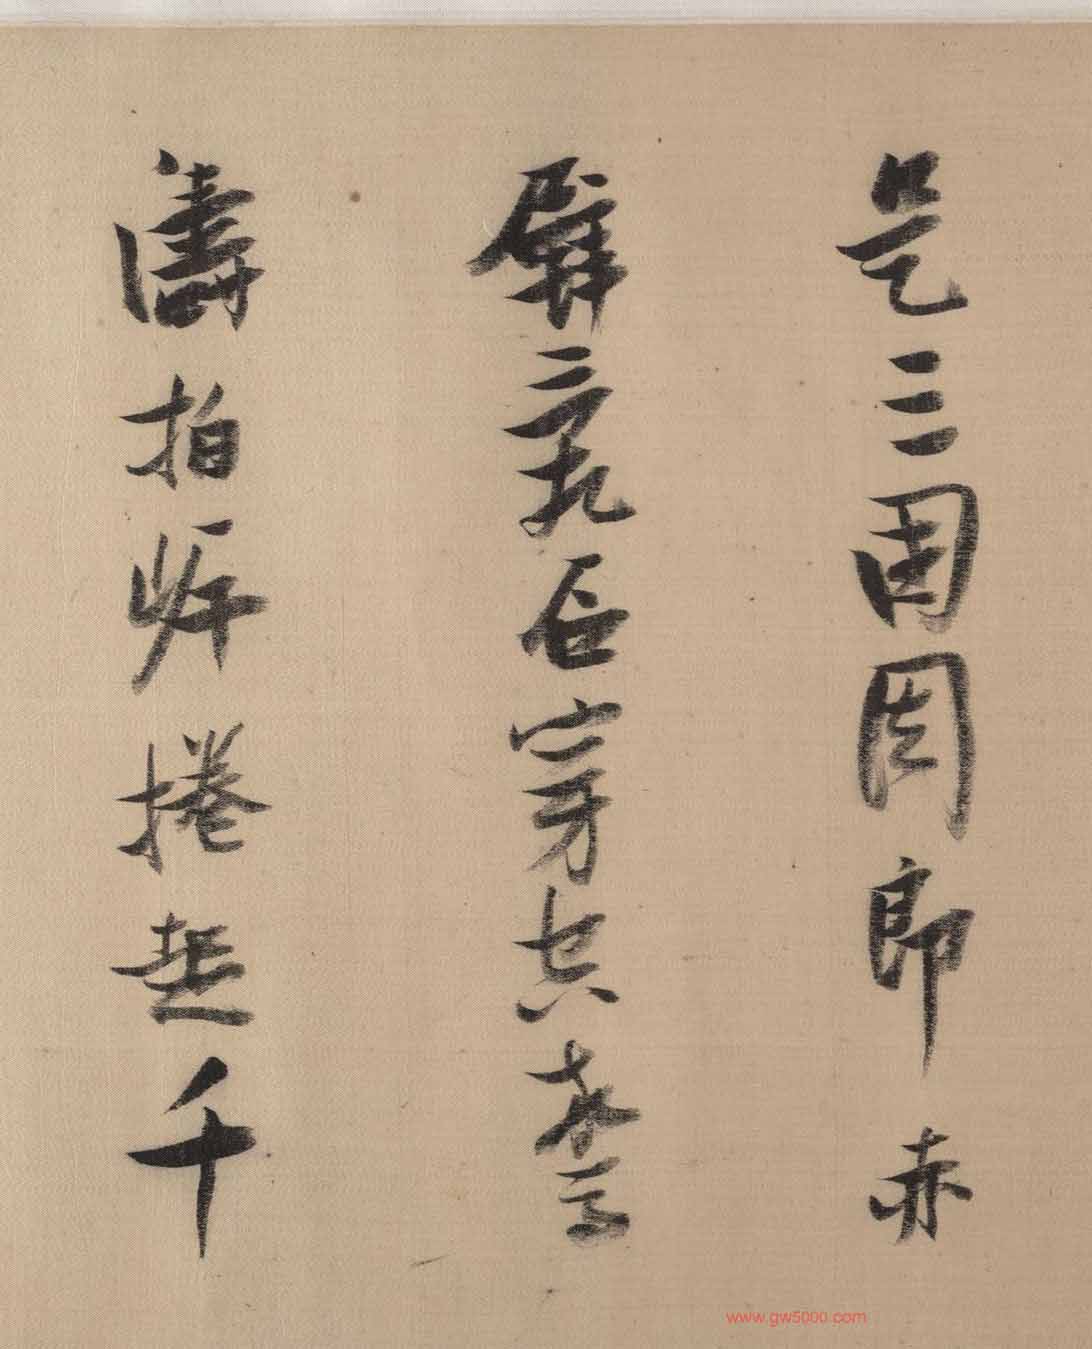 是三國周郎赤
壁亂石穿空驚
濤拍岸捲起千
www.gw5000.com